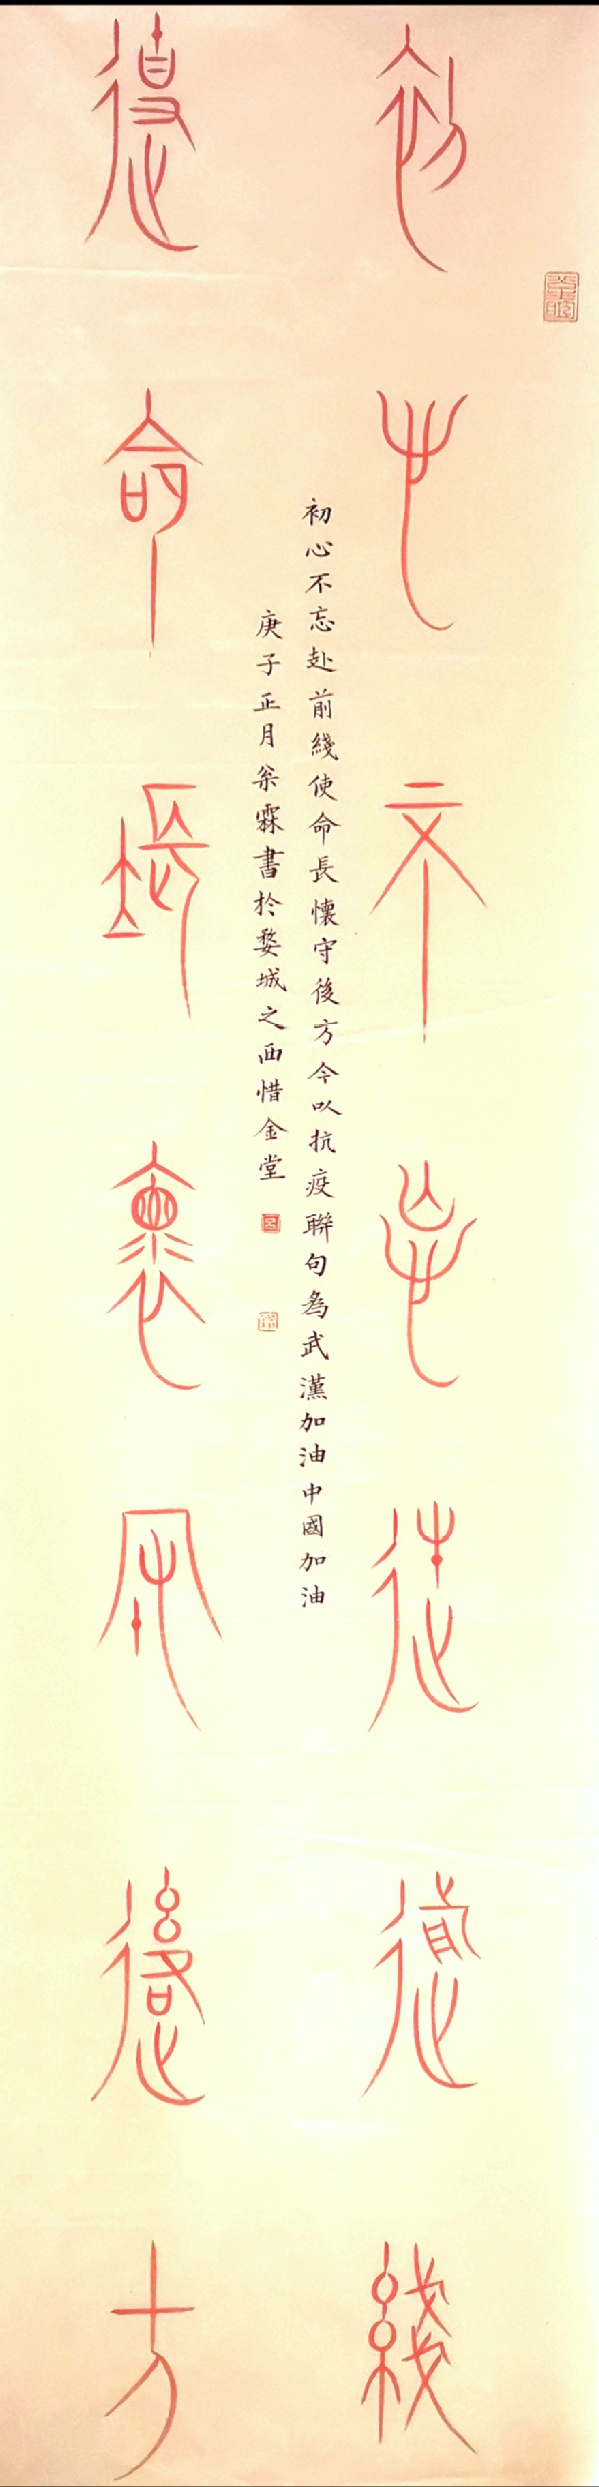 初心不忘赴前綫
使命長懷守後方
初心不忘赴前綫使命長懷守後方今以抗疫聯句為武漢加油中國加油
庚子正月燊霖書於婺城之西惜金堂